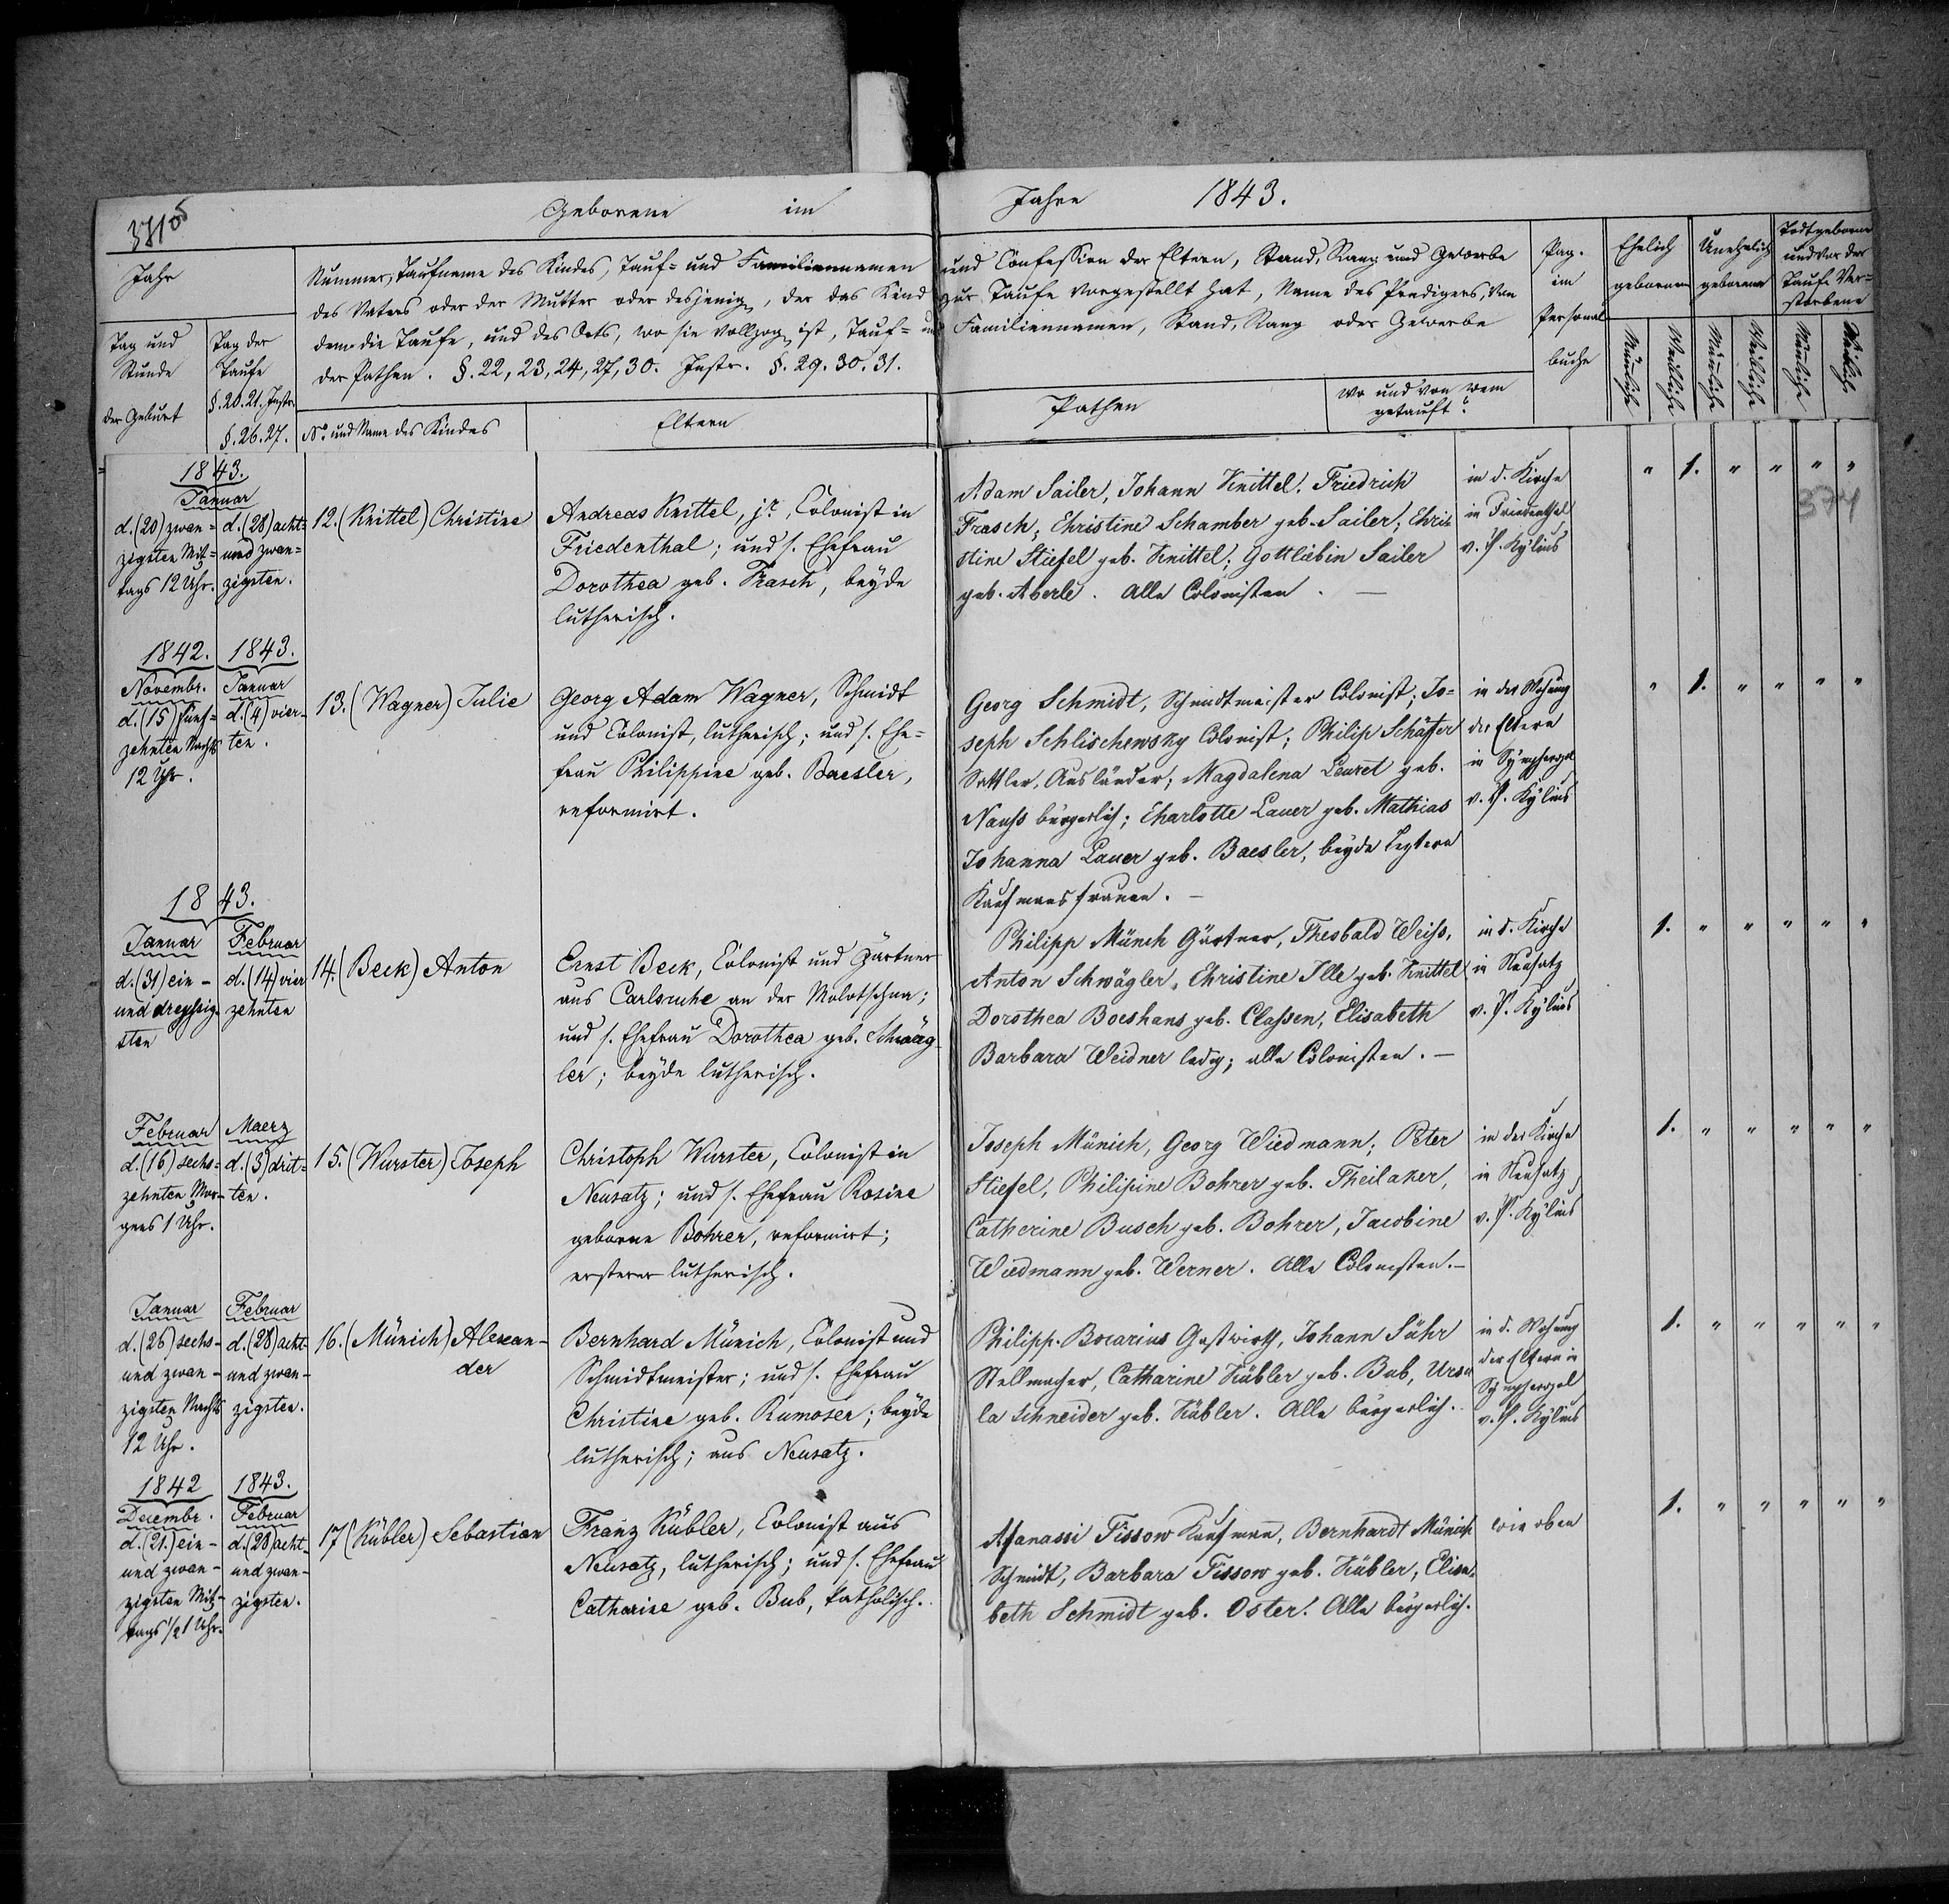 Geborene im Jahre 1843.
Jahr
Tag und Stunde der Geburt
Tag der Taufe §.20.21. Instr. §.26.27.
Nummer, Taufname des Kindes, Tauf= und Familiennamen
des Vaters oder der Mutter oder desjenig, der das Kind
dem die Taufe, und des Orts, wo sie vollzog ist, Tauf= und
der Pathen. §.22, 23, 24, 27, 30. Instr. §. 29. 30. 31.
No. und Name des Kindes
Eltern
und Confession der Eltern, Stand, Rang und Gewerbe
zur Taufe vorgestellt hat, Name des Predigers, von
Familiennamen, Stand, Rang oder Gewerbe
Pathen
wo und von wem
getauft?
Pag.
im
Personal
buche
Ehelich
geborene
Unehelich
geborene
Todtgeborene
und vor der
Taufe Ver=
storbene
Männliche
Weibliche
Männliche
Weibliche
Männliche
Weibliche
1843.
Januar
d. (20) zwan=
zigsten Mit=
tags 12 Uhr.
d. (28) acht=
und zwan=
zigsten.
12. (Knittel) Christine
Andreas Knittel, jr., Colonist in
Friedenthal; und s. Ehefrau
Dorothea geb. Frasch, beyde
lutherisch.
Adam Sailer, Johann Knittel, Friedrich
Frasch; Christine Schamber geb. Sailer; Chri=
stine Stiefel geb. Knittel; Gottliebin Sailer
geb. Aberle. Alle Colonisten. —
in d. Kirche
in Friedenthal
v. P. Kylius
" 1. " " " "
374
1842.
Novembr.
d. (15) fünf=
zehnten Nachts
12 Uhr.
1843.
Januar
d. (4) vier-
ten.
13. (Wagner) Julie
Georg Adam Wagner, Schmidt
und Colonist, lutherisch; und s. Ehe=
frau Philippine geb. Baesler,
reformirt.
Georg Schmidt, Schmidtmeister Colonist; Jo=
seph Schlischewsky Colonist; Philip Schäffer
Sattler, Ausländer; Magdalena Leuret geb.
Nauss bürgerlich; Charlotte Lauer geb. Mathias
Johanna Lauer geb. Baesler, beyde letztere
Kaufmansfrauen. —
in der Wohnung
der Eltern
in Sympheropol
v. P. Kylius
" 1. " " " "
1843.
Januar
d. (31) ein-
und dreyssig-
sten
Februar
d. (14) vier
zehnten
14. (Beck) Anton
Ernst Beck, Colonist und Gärtner
aus Carlsruhe an der Molotschna;
und s. Ehefrau Dorothea geb. Schwäg
ler; beyde lutherisch.
Philipp Münch Gärtner, Thesbald Weiss,
Anton Schwägler, Christine Ille geb. Knittel
Dorothea Boeshans geb. Classen, Elisabeth
Barbara Weidner ledig; alle Colonisten. —
in d. Kirche
in Neusatz
v. P. Kylius
1. " " " " "
Februar
d. (16) sechs=
zehnten Mor-
gens 1 Uhr.
Maerz
d. (3) drit=
ten.
15. (Wurster) Joseph
Christoph Wurster, Colonist in
Neusatz; und s. Ehefrau Rosine
geborne Bohrer, reformirt;
ersterer lutherisch.
Joseph Münich, Georg Wiedmann; Peter
Stiefel, Philipine Bohrer geb. Theilaker,
Catherine Busch geb. Bohrer, Jacobine
Wiedmann geb. Werner. Alle Colonisten. —
in der Kirche
in Neusatz
v. P. Kylius
1. " " " " "
Januar
d. (26) sechs-
und zwan-
zigsten Nachts
12 Uhr.
Februar
d. (28) acht-
und zwan-
zigsten.
16. (Münich) Alexan-
der
Bernhard Münich, Colonist und
Schmidtmeister; und s. Ehefrau
Christine geb. Rumoser; beyde
lutherisch; aus Neusatz.
Philipp Bocarius Gastwirth, Johann Sühr
Stellmacher, Catharine Kübler geb. Bub, Ursu
la Schneider geb. Kübler. Alle bürgerlich.
in d. Wohnung
der Eltern in
Sympheropol
v. P. Kylius
1. " " " " "
1842
Decembr.
d. (21.) ein-
und zwan-
zigsten Mit-
tags 1/2 1 Uhr.
1843.
Februar
d. (28) acht-
und zwan-
zigsten.
17 (Kübler) Sebastian
Franz Kübler, Colonist aus
Neusatz, lutherisch; und s. Ehefrau
Catharine geb. Bub, katholisch.
Afanassi Tissow Kaufmann, Bernhardt Münich
Schmidt, Barbara Tissow geb. Kübler, Elisa=
beth Schmidt geb. Oster. Alle bürgerlich.
wie oben
1. " " " " "